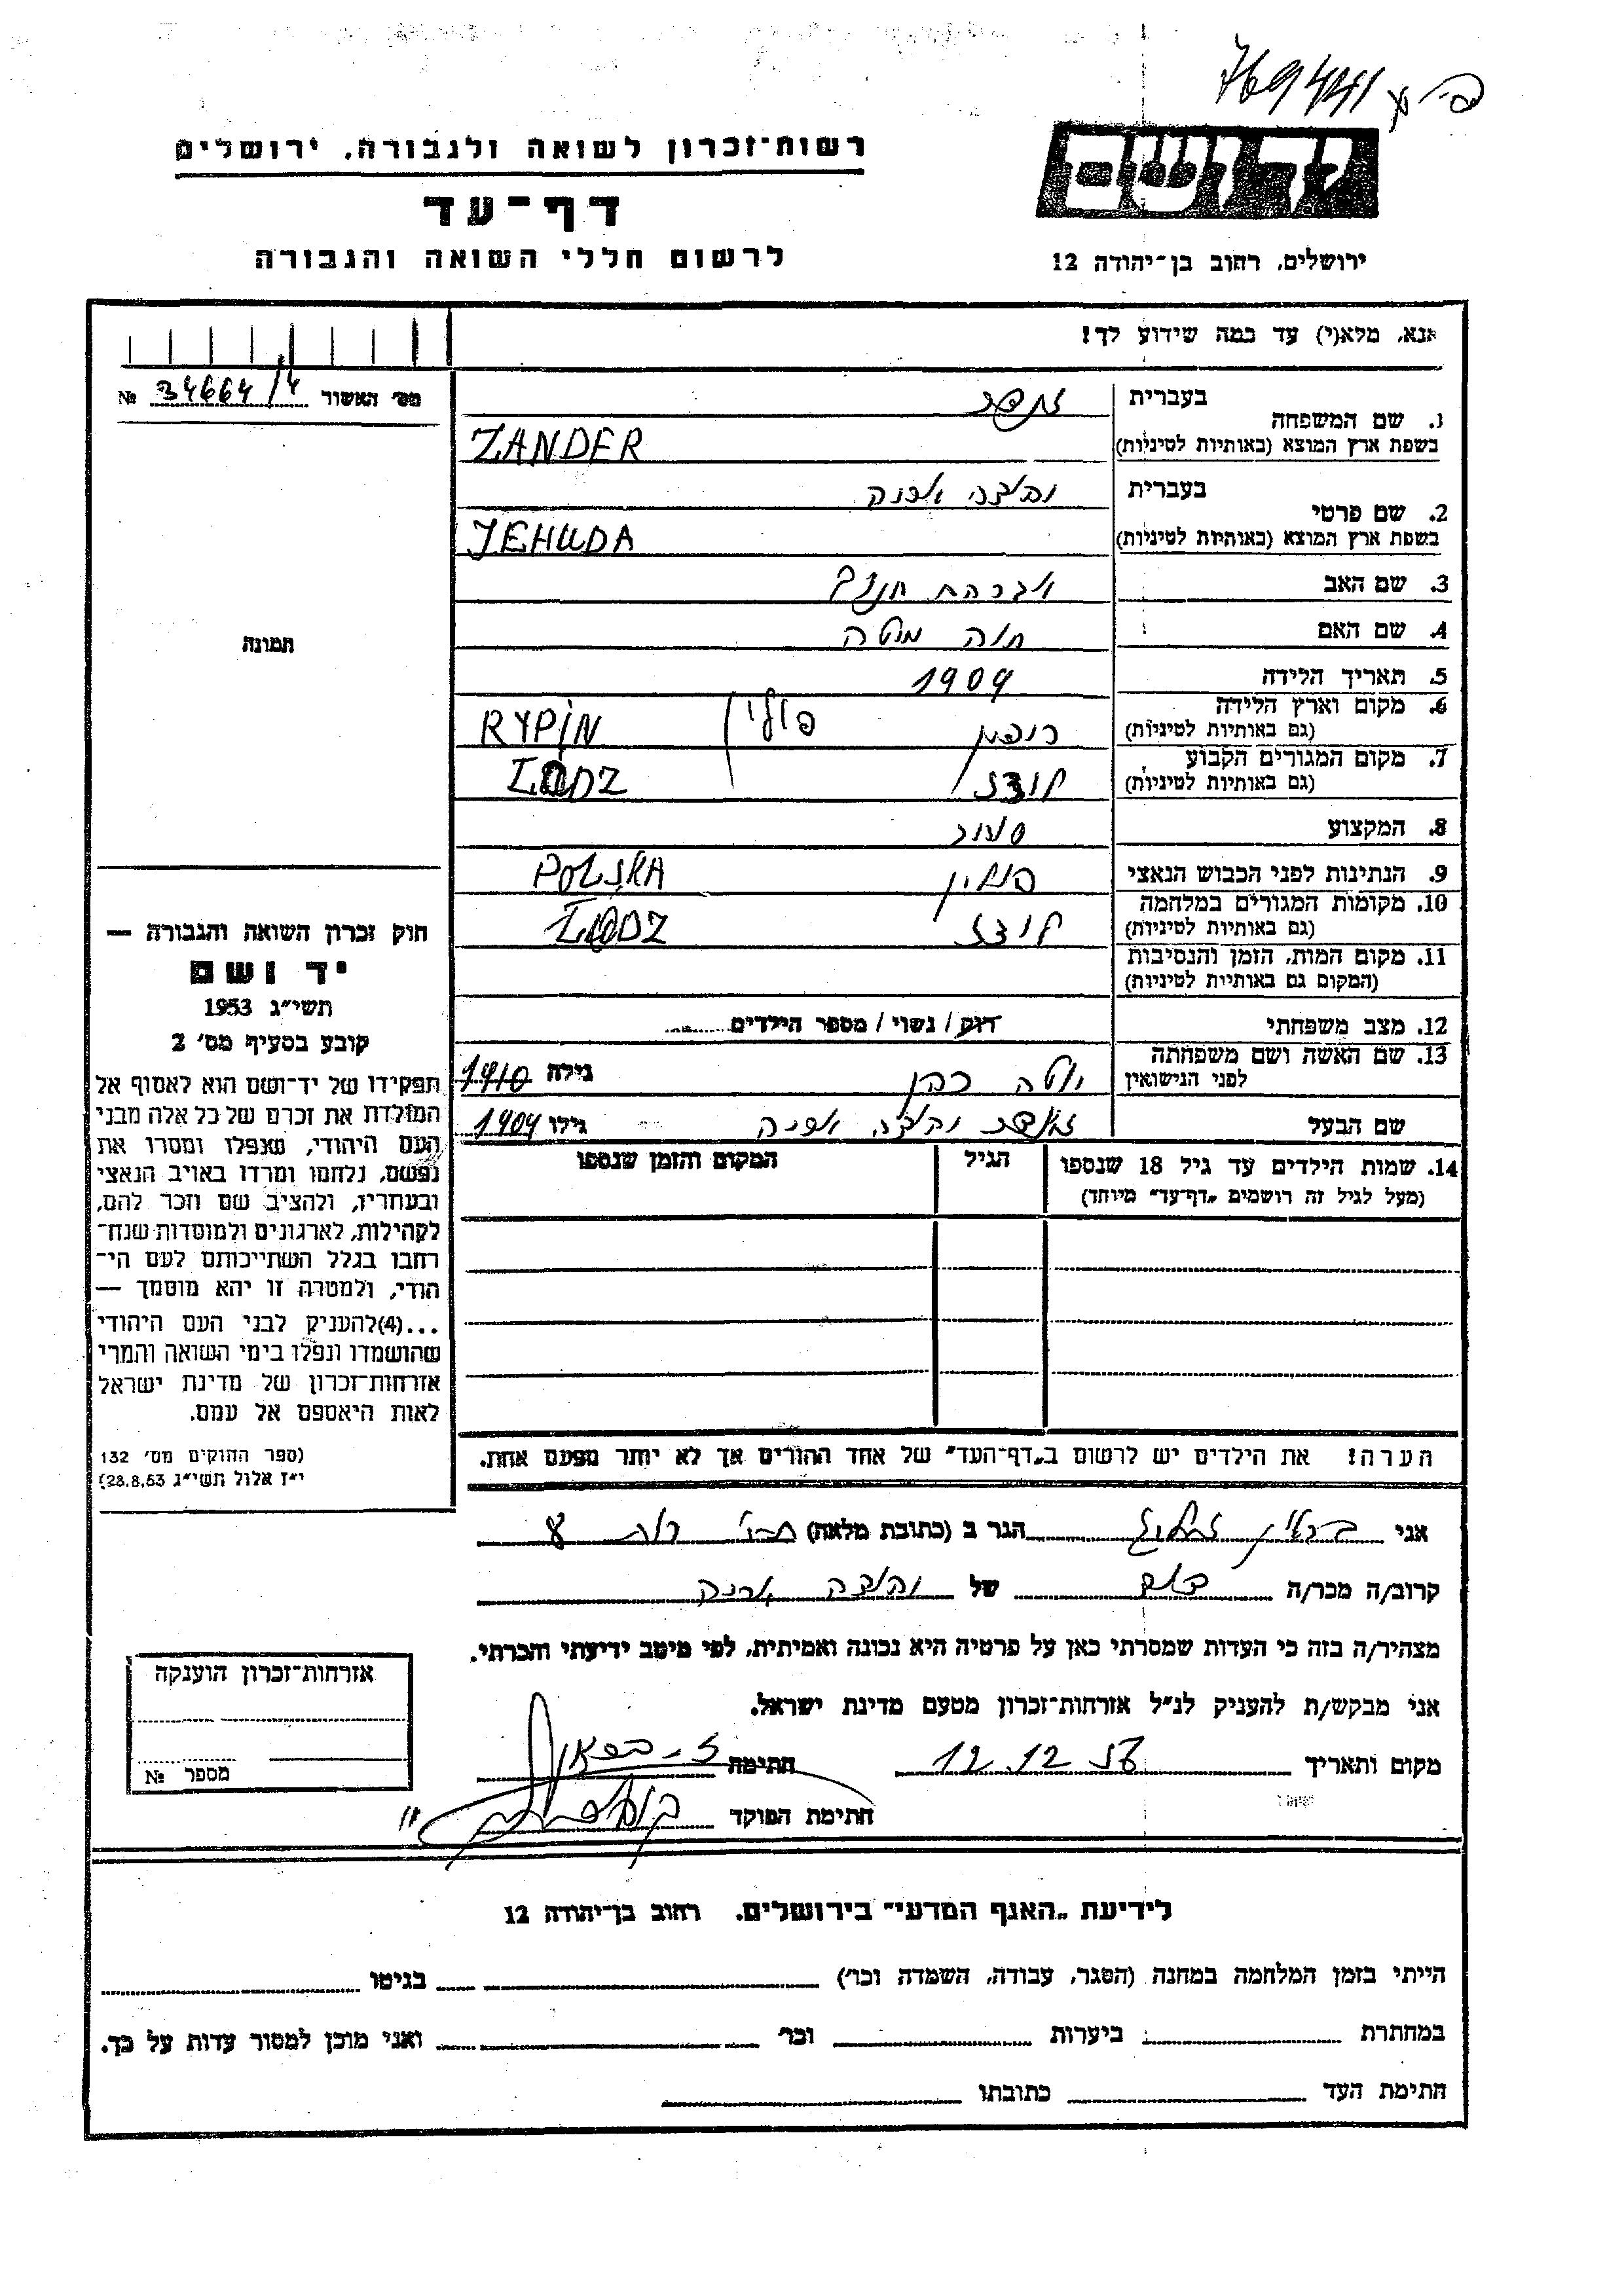 769441
רשות־זכרון לשואה ולגבורה, ירושלים
דף־עד
לרשום חללי השואה והגבורה
ירושלים, רחוב בן־יהודה 12
אנא, מלא(י) עד כמה שידוע לך!
מס׳ האשור 34664/4 №
בעברית
1. שם המשפחה
בשפת ארץ המוצא (באותיות לטיניות) ZANDER
בעברית יהודה
2. שם פרטי
בשפת ארץ המוצא (באותיות לטיניות) JEHUDA
3. שם האב אברהם
4. שם האם חוה
5. תאריך הלידה 1909
6. מקום וארץ הלידה ריפין פולין RYPIN
(גם באותיות לטיניות)
7. מקום המגורים הקבוע לודז ŁODZ
(גם באותיות לטיניות)
8. המקצוע סוחר
9. הנתינות לפני הכבוש הנאצי פולין POLSKA
10. מקומות המגורים במלחמה לודז ŁODZ
(גם באותיות לטיניות)
11. מקום המות, הזמן והנסיבות
(המקום גם באותיות לטיניות)
12. מצב משפחתי רוק / נשוי / מספר הילדים
13. שם האשה ושם משפחתה
לפני הנישואין כהן גילה 1910
שם הבעל יהודה גילו 1909
14. שמות הילדים עד גיל 18 שנספו הגיל המקום והזמן שנספו
(מעל לגיל זה רושמים „דף־עד״ מיוחד)
הערה! את הילדים יש לרשום ב„דף־העד״ של אחד ההורים אך לא יותר מפעם אחת.
תמונה
חוק זכרון השואה והגבורה —
יד ושם
תשי״ג 1953
קובע בסעיף מס׳ 2
תפקידו של יד־ושם הוא לאסוף אל
המולדת את זכרם של כל אלה מבני
העם היהודי, שנפלו ומסרו את
נפשם, נלחמו ומרדו באויב הנאצי
ובעוזריו, ולהציב שם וזכר להם,
לקהילות, לארגונים ולמוסדות שנח־
רחבו בגלל השתייכותם לעם הי־
הודי, ולמטרה זו יהא מוסמך —
...(4)להעניק לבני העם היהודי
שהושמדו ונפלו בימי השואה והמרי
אזרחות־זכרון של מדינת ישראל
לאות היאספם אל עמם.
(ספר החוקים מס׳ 132
י״ז אלול תשי״ג 28.8.53)
אני הגר ב (כתובת מלאה)
קרוב/ה מכר/ה של יהודה
מצהיר/ה בזה כי העדות שמסרתי כאן על פרטיה היא נכונה ואמיתית, לפי מיטב ידיעתי והכרתי.
אני מבקש/ת להעניק לנ״ל אזרחות־זכרון מטעם מדינת ישראל.
מקום ותאריך 12.12 חתימה
חתימת הפוקד
אזרחות־זכרון הוענקה
מספר №
לידיעת „האגף המדעי״ בירושלים, רחוב בן־יהודה 12
הייתי בזמן המלחמה במחנה (הסגר, עבודה, השמדה וכו׳) בגיטו
במחתרת ביערות וכו׳ ואני מוכן למסור עדות על כך.
חתימת העד כתובתו